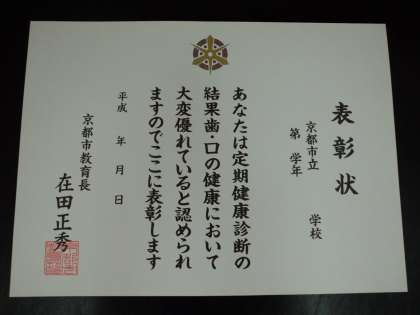 表彰状
京都市立　　　学校
第　学年
あなたは定期健康診断の
結果歯・口の健康において
大変優れていると認められ
ますのでここに表彰します
平成　年　月　日
京都市教育長
在田正秀